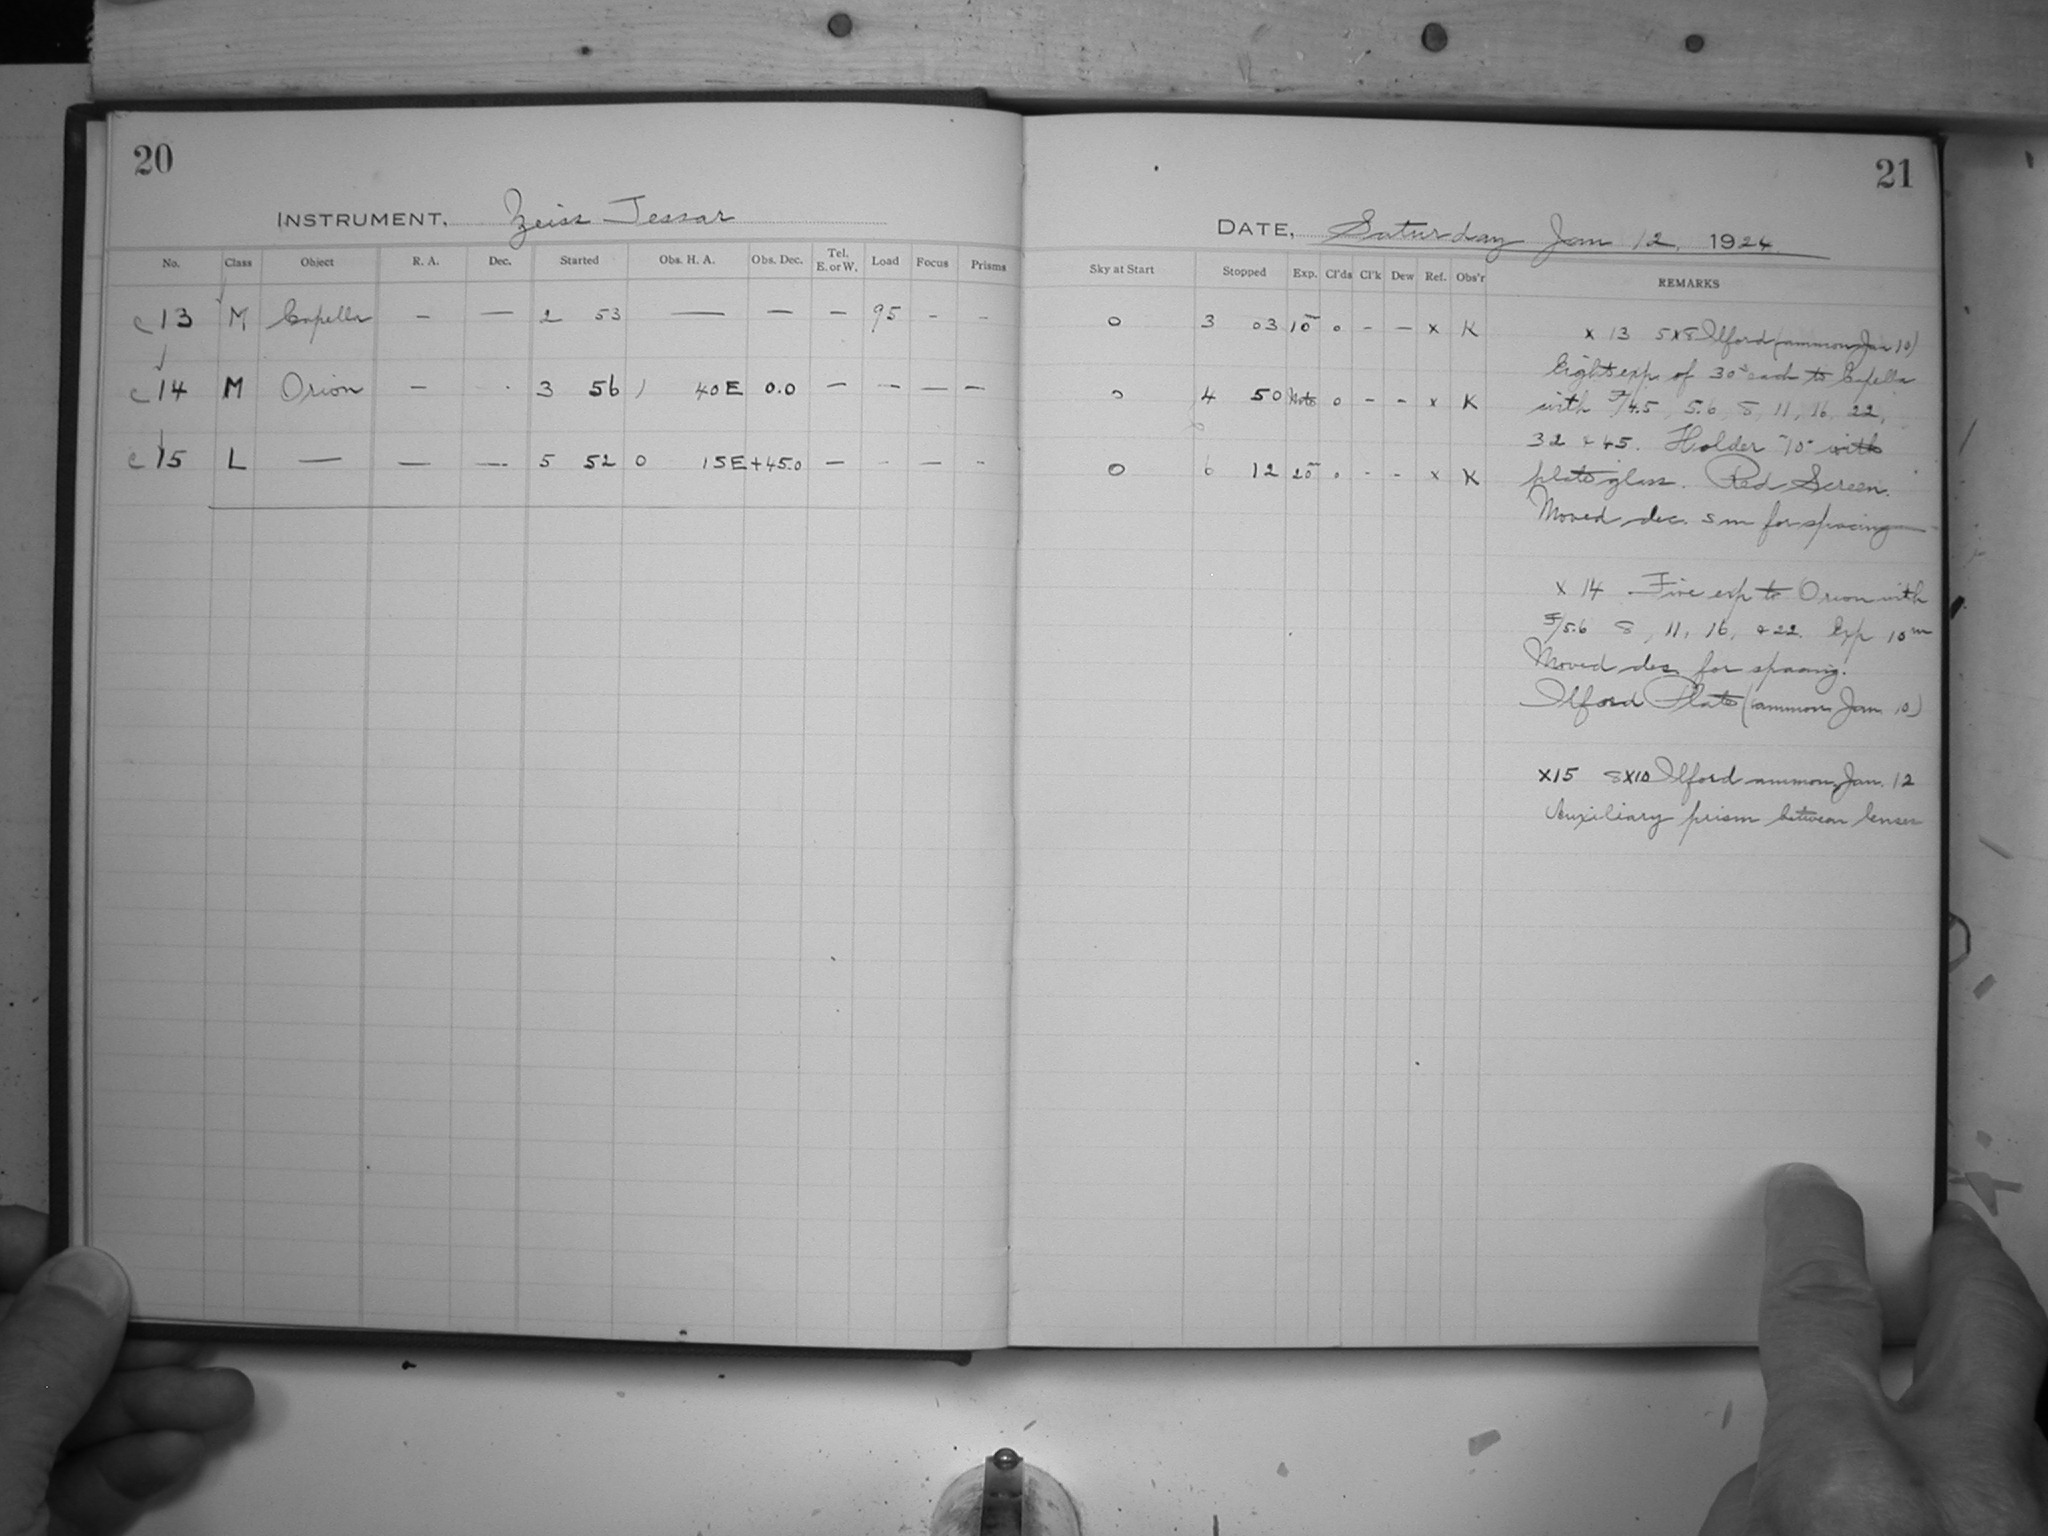 20
INSTRUMENT. Zeiss Tessar
No. Class Object R. A. Dec. Started Obs. H. A. Obs. Dec. Tel. E. or W. Load Focus Prisms
c 13 M Capella — — 2 53 — — — 95 - -
c 14 M Orion — - 3 56 1 40 E 0.0 — — — —
c 15 L — — — 5 52 0 15 E +45.0 — - — -
21
DATE, Saturday Jan 12, 1924.
Sky at Start Stopped Exp. Cl'ds Cl'k Dew Ref. Obs'r REMARKS
0 3 03 10m 0 - — x K
0 4 50 Note 0 - - x K
0 6 12 20m 0 - - x K
x 13 5x8 Ilford (ammon Jan 10)
Eight exp. of 30s each to Capella
with F/4.5, 5.6, 8, 11, 16, 22,
32 & 45. Holder with
plate glass. Red Screen.
Moved dec. 5m for spacing
x 14 Five exp to Orion with
F/5.6 8, 11, 16, & 22. Exp 10m
Moved dec. for spacing.
Ilford Plate (ammon Jan 10)
X15 8X10 Ilford ammon. Jan. 12
Auxiliary prism between lenses